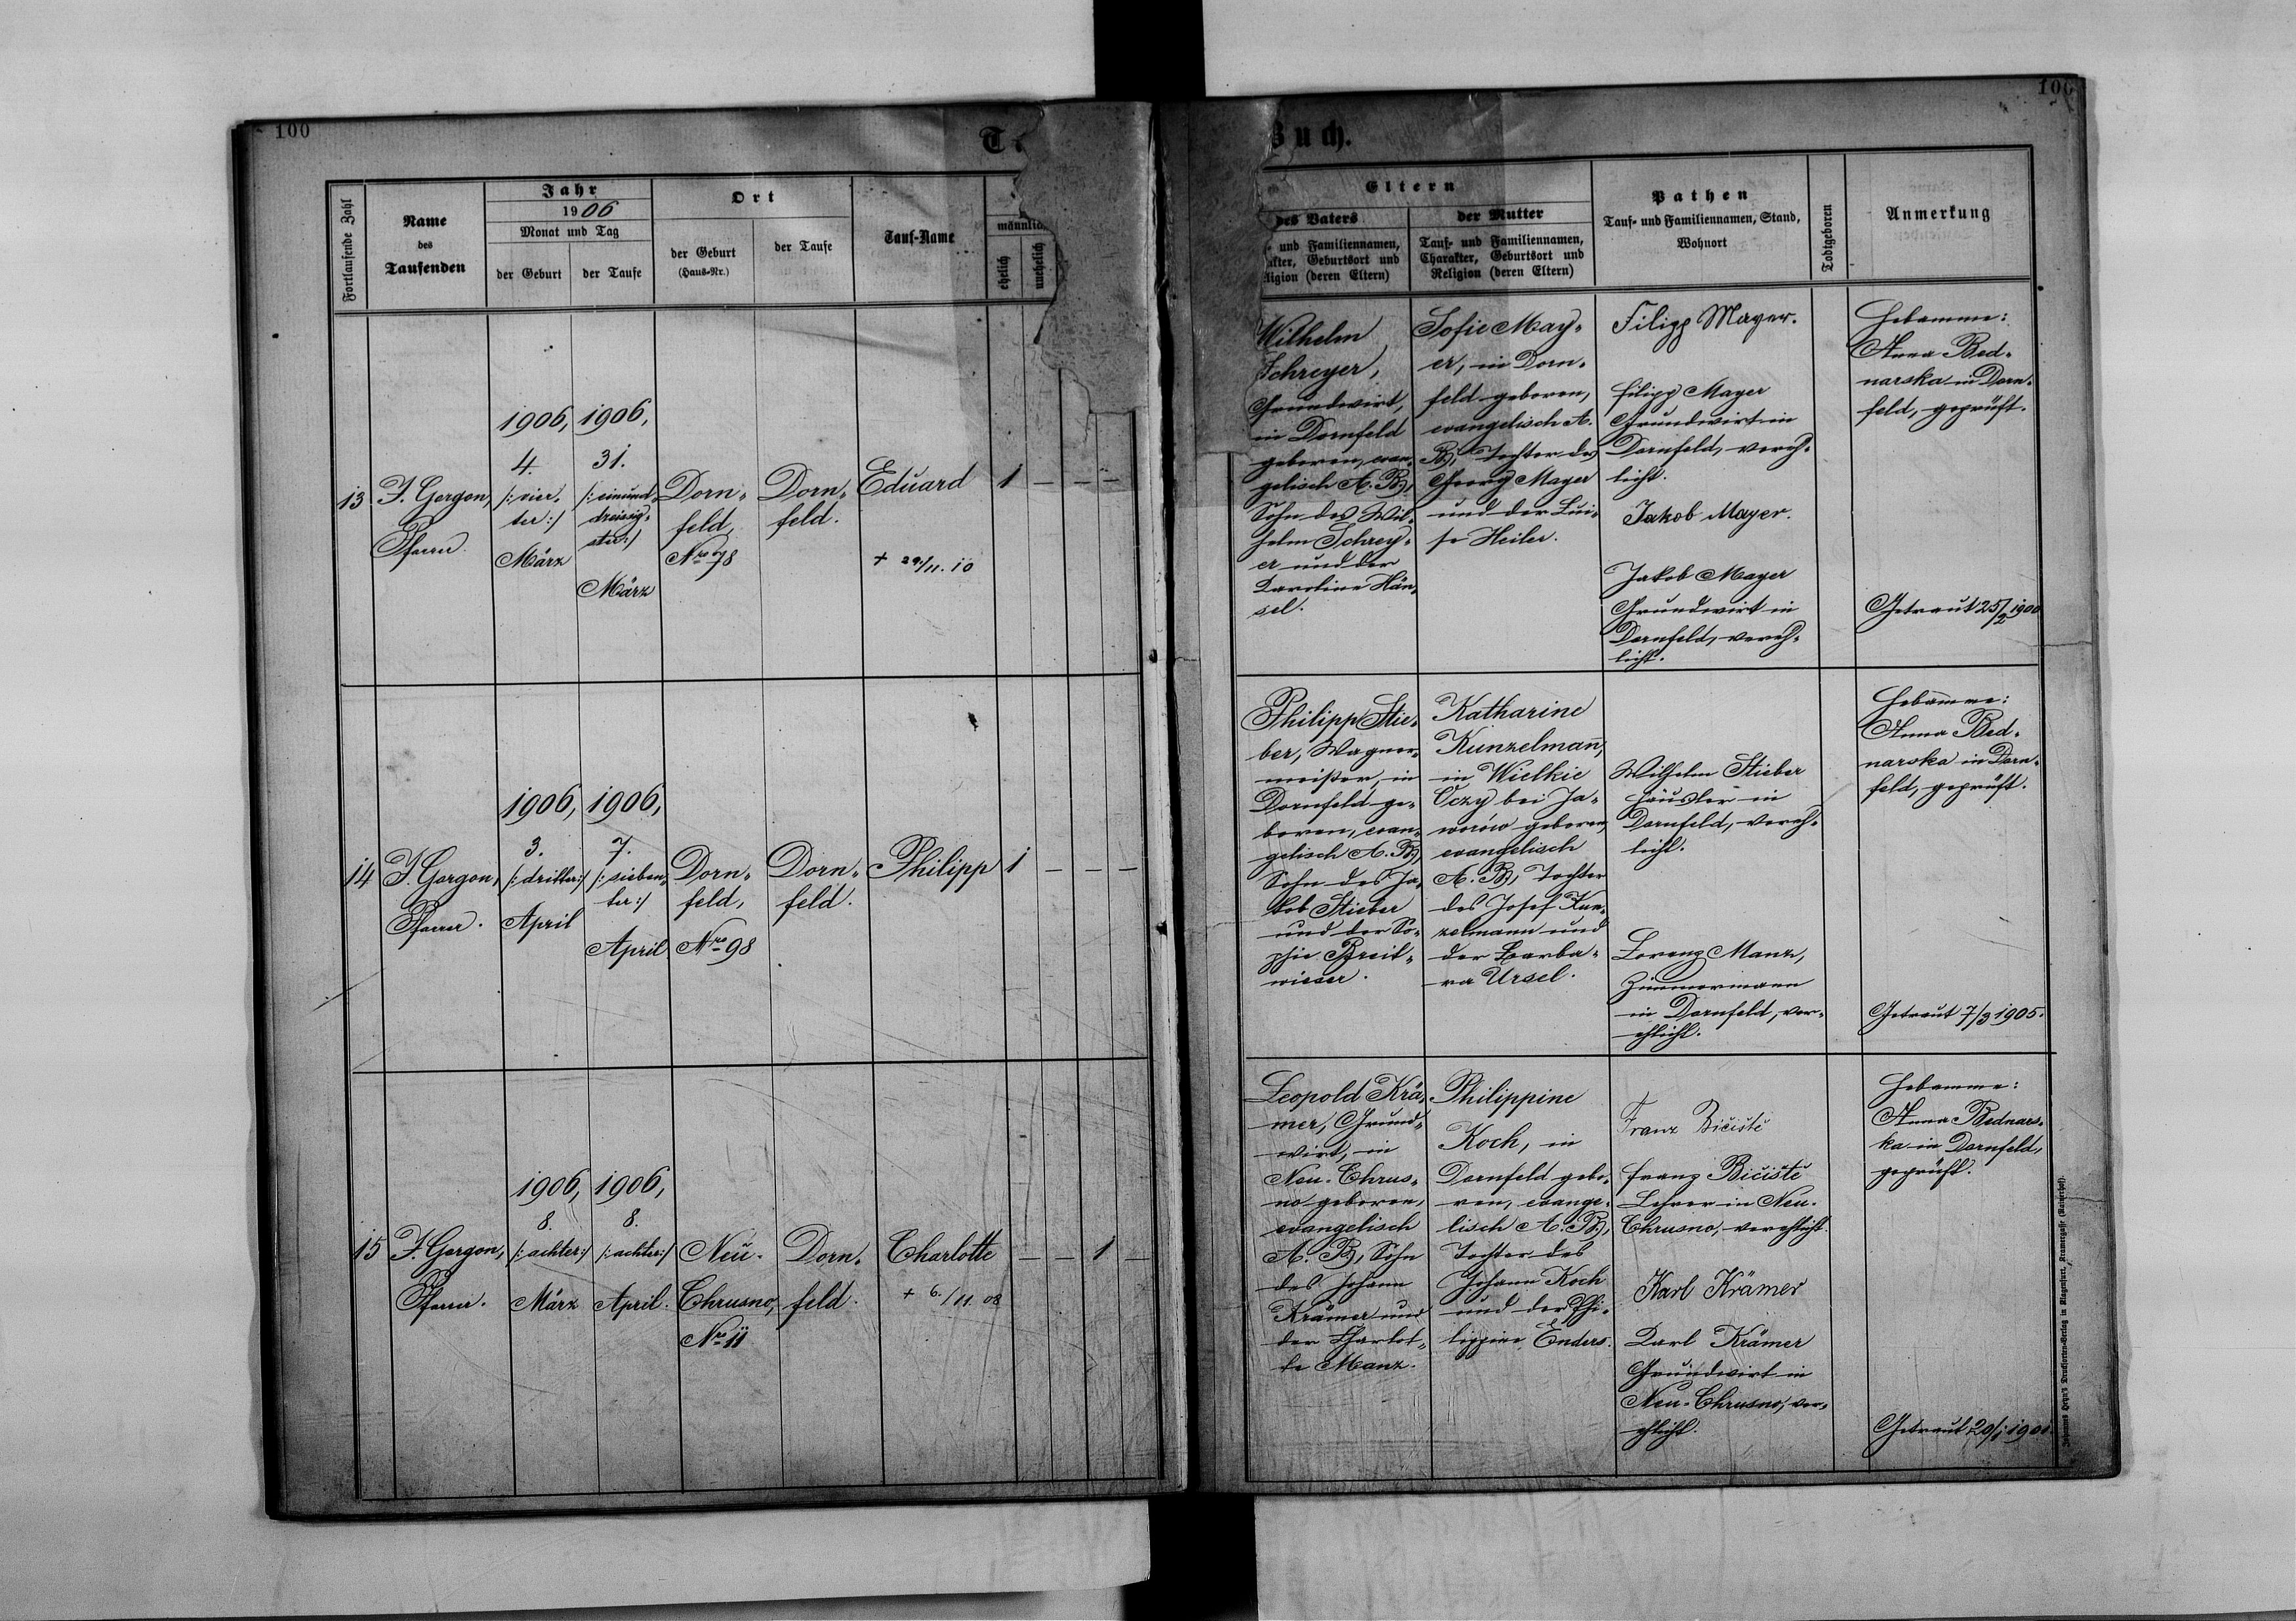 100
100
T
Buch.
Fortlaufende Zahl
Name
des
Taufenden
Jahr
1906
Monat und Tag
der Geburt
der Taufe
Ort
der Geburt
(Haus-Nr.)
der Taufe
Tauf-Name
männlich
ehelich
unehelich
Eltern
des Vaters
und Familiennamen,
Geburtsort und
(deren Eltern)
der Mutter
Tauf- und Familiennamen,
Charakter, Geburtsort und
Religion (deren Eltern)
Pathen
Tauf- und Familiennamen, Stand,
Wohnort
Todtgeboren
Anmerkung
13
J. Gorgon,
Pfarrer.
1906,
4.
/:vier-
ter:/
März
1906,
31.
/:einund-
dreissig-
ster:/
März
Dorn-
feld,
Nro 78
Dorn-
feld.
Eduard
+ 29./11. 10
1 — — —
Wilhelm
Schreyer,
Grundwirt,
in Dornfeld
geboren, evan-
gelisch A. B.,
Sohn des Wil-
helm Schrey-
er und der
Karoline Hän-
sel.
Sofie May-
er, in Dorn-
feld geboren,
evangelisch A.
B., Tochter des
Georg Mayer
und der Lui-
se Heiler.
Filipp Mayer.
Filipp Mayer
Grundwirt in
Dornfeld, vereh-
licht.
Jakob Mayer.
Jakob Mayer
Grundwirt in
Dornfeld, vereh-
licht.
Hebamme:
Anna Bed-
narska in Dorn-
feld, geprüft.
Getraut 25/2 1900
14
J. Gorgon,
Pfarrer.
1906,
3.
/:dritter:/
April
1906,
7.
/:sieben-
ter:/
April
Dorn-
feld,
Nro 98
Dorn-
feld.
Philipp
1 — — —
Philipp Stie-
ber, Wagner-
meister, in
Dornfeld ge-
boren, evan-
gelisch A. B.,
Sohn des Ja-
kob Stieber
und der So-
phie Breit-
wieser.
Katharine
Kunzelmann,
in Wielkie
Oczy bei Ja-
worów geboren,
evangelisch
A. B., Tochter
des Josef Kun-
zelmann und
der Barba-
ra Ursel.
Wilhelm Stieber
Häusler in
Dornfeld, vereh-
licht.
Lorenz Manz,
Zimmermann
in Dornfeld, ver-
ehlicht.
Hebamme:
Anna Bed-
narska in Dorn-
feld, geprüft.
Getraut 7/3 1905.
15
J. Gorgon,
Pfarrer.
1906,
8.
/:achter:/
März
1906,
8.
/:achter:/
April.
Neu-
Chrusno,
Nro 11
Dorn-
feld.
Charlotte
+ 6./11. 08
— — 1 —
Leopold Krä-
mer, Grund-
wirt, in
Neu-Chrus-
no geboren,
evangelisch
A. B., Sohn
des Johann
Krämer und
der Charlot-
te Manz.
Philippine
Koch, in
Dornfeld gebo-
ren, evange-
lisch A. B.,
Tochter des
Johann Koch
und der Phi-
lippine Enders.
Franz Bičiště
Franz Bičiště
Lehrer in Neu-
Chrusno, verehlicht.
Karl Krämer
Karl Krämer
Grundwirt in
Neu-Chrusno, ver-
ehlicht.
Hebamme:
Anna Bednars-
ka in Dornfeld,
geprüft.
Getraut 29/1 1901.